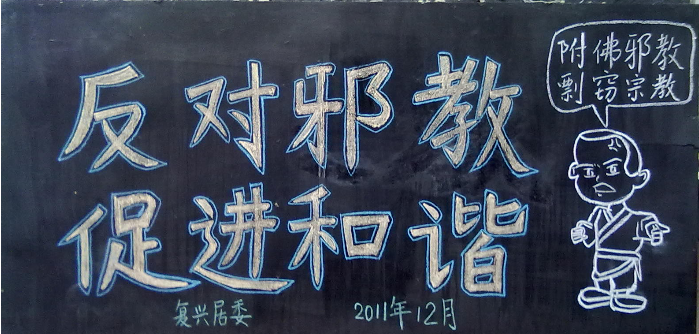 反对邪教
促进和谐
附佛邪教
剽窃宗教
复兴居委
2011年12月